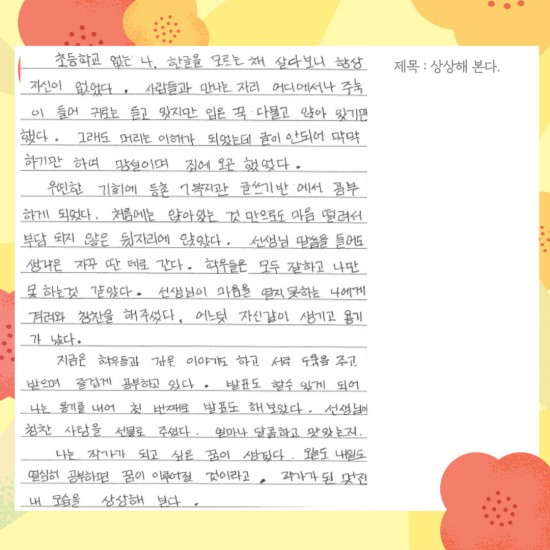 초등학교 없는 나, 한글을 모르는 채 살다보니 항상
자신이 없었다. 사람들과 만나는 자리 어디에서나 주눅
이 들어 귀로는 듣고 있지만 입은 꾹 다물고 앉아 있기만
했다. 그래도 머리는 이해가 되었는데 글이 안되어 막막
하기만 하며 망설이며 집에 오곤 했었다.
우연한 기회에 등촌 7복지관 글쓰기반 에서 공부
하게 되었다. 처음에는 앉아있는 것 만으로도 마음 떨려서
부담 되지 않은 뒷자리에 앉았다. 선생님 말씀을 들어도
생각은 자꾸 딴 데로 간다. 학우들은 모두 잘하고 나만
못 하는것 같았다. 선생님이 마음을 열지 못하는 나에게
격려와 칭찬을 해주셨다. 어느덧 자신감이 생기고 용기
가 났다.
지금은 학우들과 같은 이야기도 하고 서로 도움을 주고
받으며 즐겁게 공부하고 있다. 발표도 할수 있게 되어
나는 용기를 내어 첫 번째로 발표도 해보았다. 선생님이
칭찬 사탕을 선물로 주셨다. 얼마나 달콤하고 맛있는지.
나는 작가가 되고 싶은 꿈이 생겼다. 오늘도 내일도
열심히 공부하면 꿈이 이루어질 것이라고. 작가가 된 멋진
내 모습을 상상해 본다.
제목 : 상상해 본다.